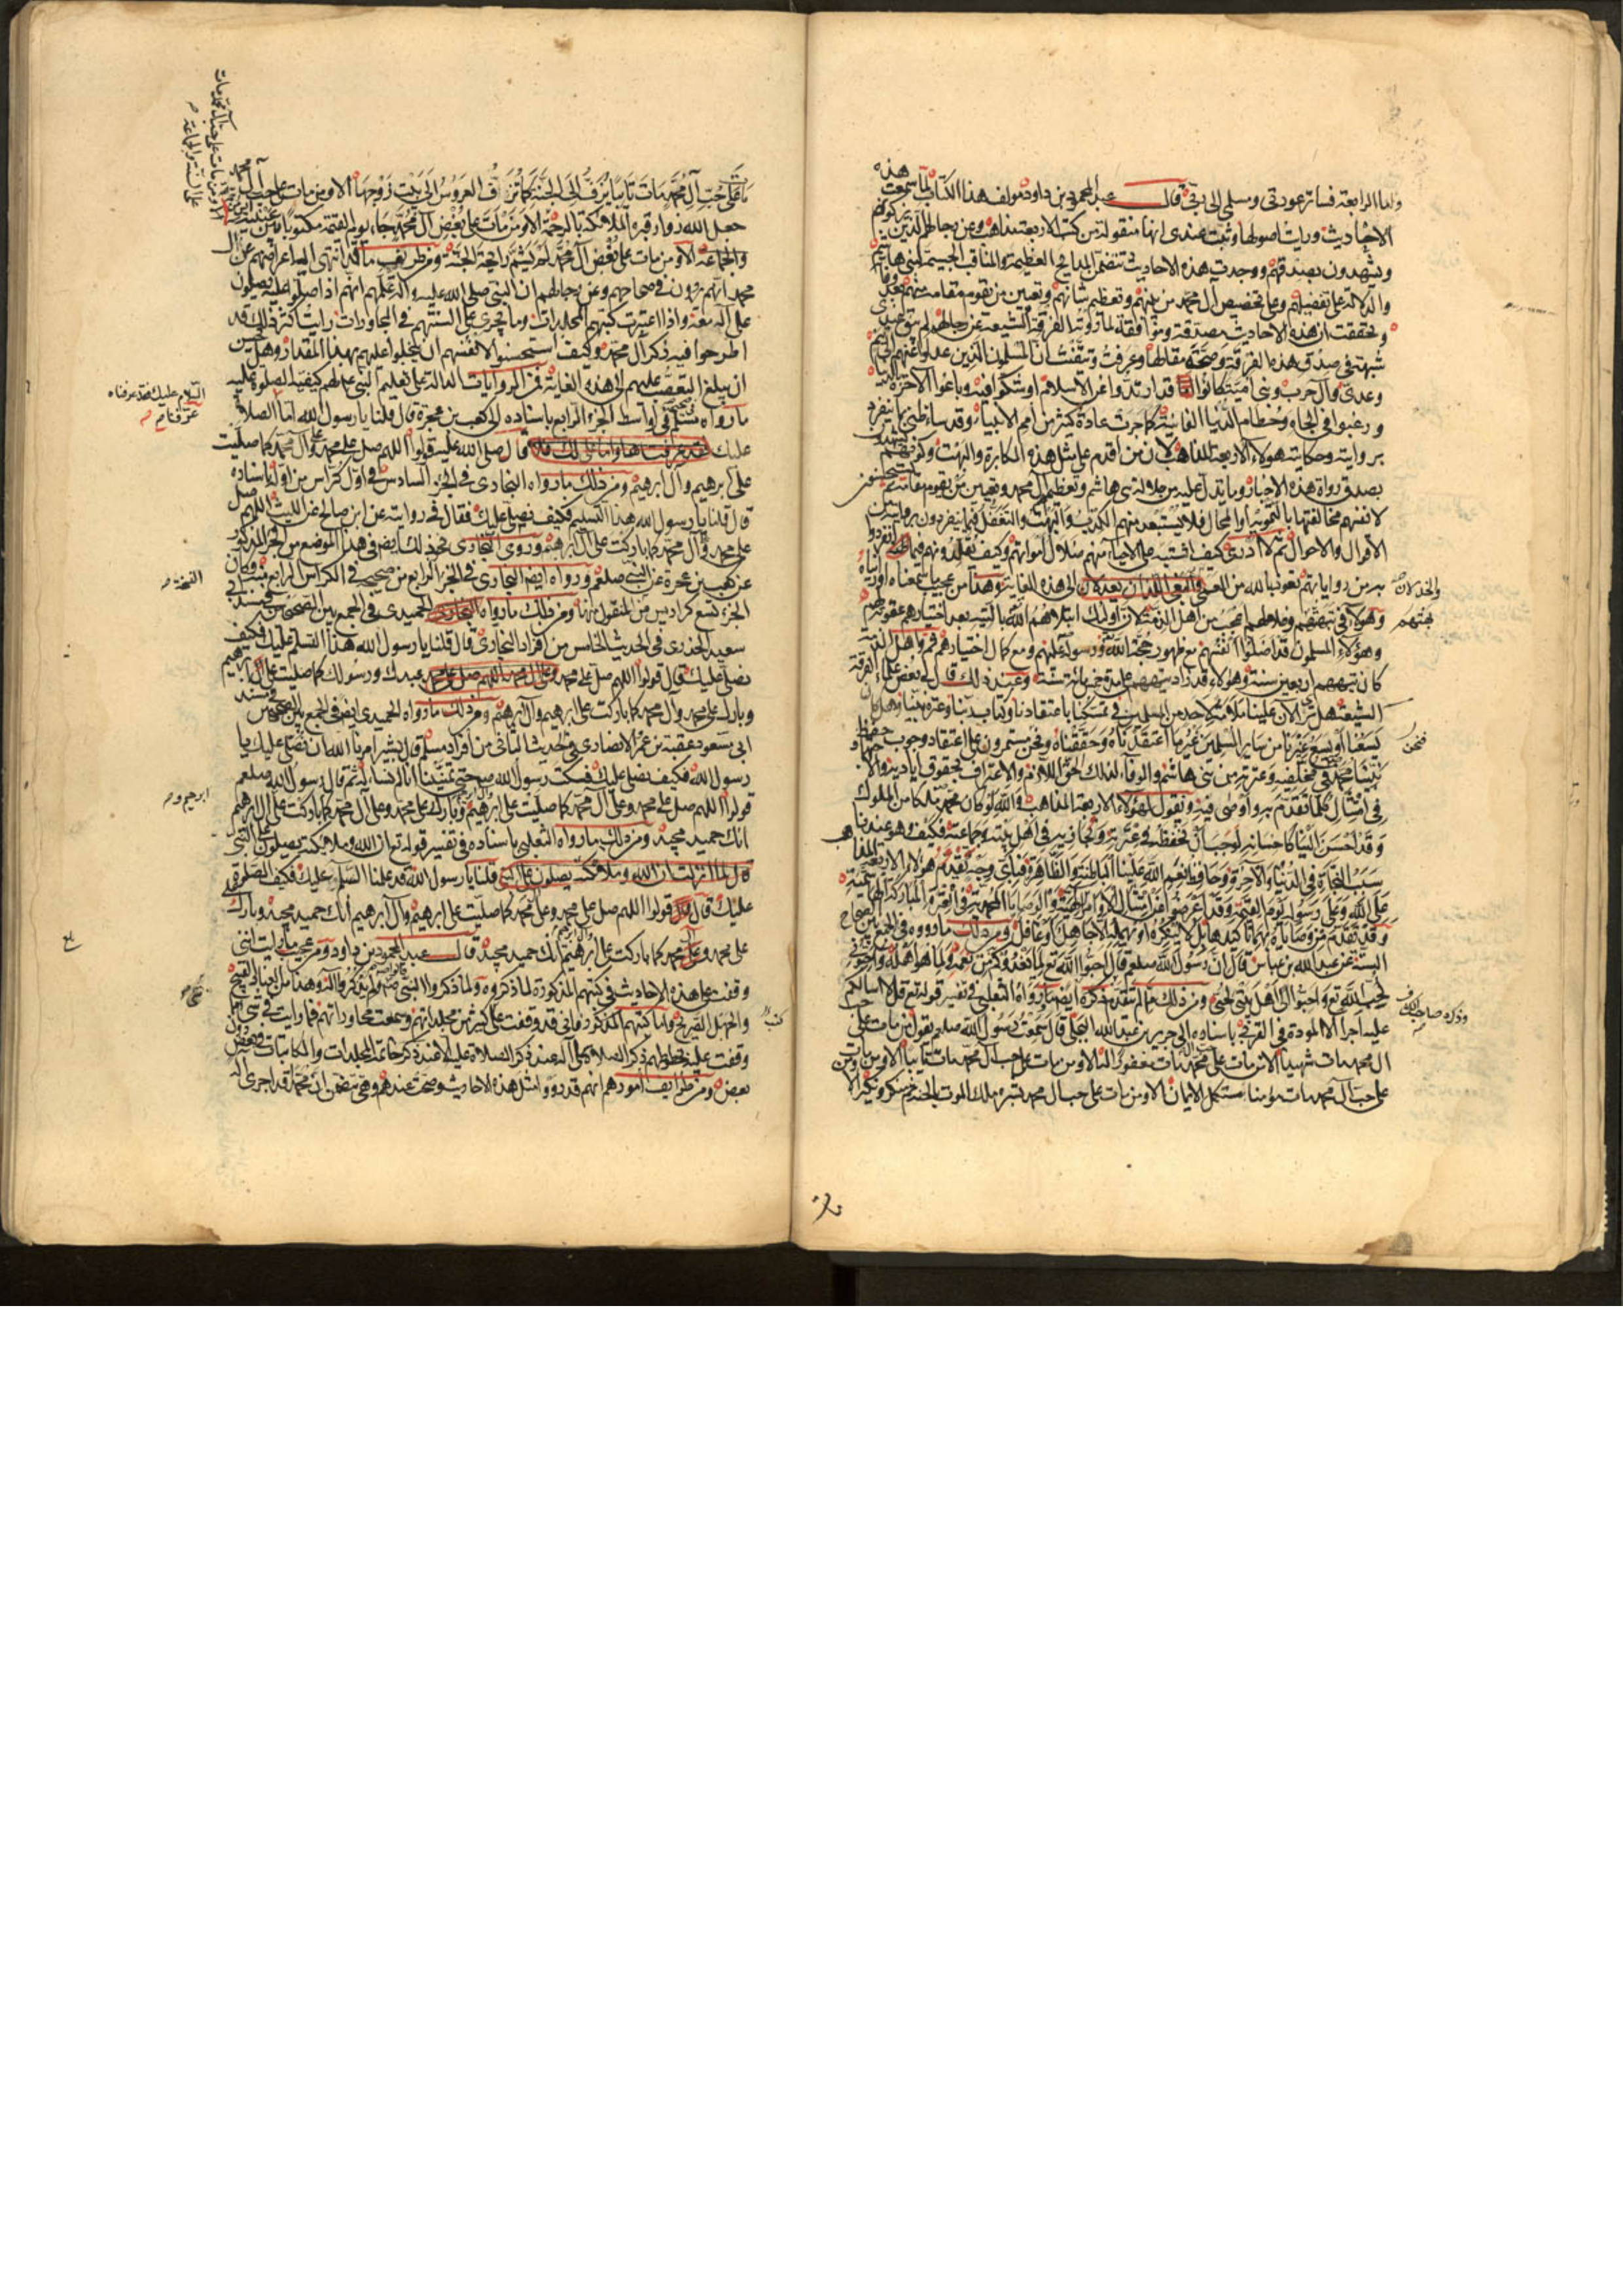 واما الرابعة فساتر عورتي ومسلمي الى ربي قال عبد المحمود بن داود مؤلف هذا الكتاب لما سمعت هذه
الاحاديث ورايت اصولها وثبت عندي انها منقولة من كتب الاربعة مذاهب وعن رجالهم الذين يزكونهم
ويشهدون بصدقهم ووجدت هذه الاحاديث تتضمن المدايح العظيمة والمناقب الجسيمة لبني هاشم
والدلالة على تفضيلهم وعلى تخصيص آل محمد من بينهم وتعظيم شانهم وتعيين من يقوم مقامه منهم بعد وفاته
وتحققت ان هذه الاحاديث مصدقة وموافقة لما روته الفرقة الشيعة عن رجالهم لم يبق عندي
شبهة في صدق هذه الفرقة وصحة مقالها وعرفت وتيقنت ان المسلمين الذين عدلوا عنهم الى تيم
وعدي وآل حرب وبني امية كانوا قد ارتدوا عن الاسلام او شكوا فيه وباعوا الآخرة بالدنيا
ورغبوا في الجاه وحطام الدنيا الفانية كما جرت عادة كثير من امم الانبياء وقد ساء ظني بما ينفرد
بروايته وحكايته هؤلاء الاربعة المذاهب لان من اقدم على مثل هذه المكابرة والبهت
بصدق رواة هذه الاخبار وما يدل عليه من جلالة بني هاشم وتعظيم آل محمد وتعيين من يقوم مقامه ثم يستحسنون
لانفسهم مخالفتها بالتمويه او المحال فلا يستبعد منهم الكذب والبهت والتغفل فيما ينفردون بروايته من
الاقوال والاحوال ثم لا ادري كيف اشتبه على الاحياء منهم ضلال امواتهم وكيف تقلدونهم فيما انفردوا
به من رواياتهم نعوذ بالله من العمى والخذلان الى هذه الغاية وهذا من عجيب ما سمعناه او رايناه
وهؤلاء في تيههم وضلالهم اعجب من اهل الذمة لان اولئك ابتلاهم الله بالتيه بعد اختيارهم عقوبة لهم
وهؤلاء المسلمون قد اضلوا انفسهم مع ظهور حجة الله ورسوله عليهم ومع كمال اختيارهم واهل الذمة
كان تيههم اربعين سنة وهؤلاء قد زاد تيههم على مدة خمسمائة سنة وعند ذلك قال لي بعض علماء الفرقة
الشيعة هل ترى الآن علينا ملامة لاحد من المسلمين في تمسكنا باعتقادنا وكتاب ربنا وعترة نبينا وهل كان
يسعنا او يسع غيرنا من ساير المسلمين غير ما اعتقدناه وحققناه ونحن مستمرون على اعتقاد وجوب حفظ
نبينا محمد في مخلفيه وعترته من بني هاشم والوفاء له بذلك الحق اللازم والاعتراف بحقوق اياديه والاجتهاد
في امتثال كلما تقدم به واوصى فيه ونقول لهؤلاء الاربعة المذاهب والله لو كان محمد ملكا من الملوك
وقد احسن الينا كاحسانه لوجب ان نحفظه في عترته ونجازيه في اهل بيته وجماعته فكيف وهو عندنا
سبب النجاة في الدنيا والآخرة وحافظ نعم الله علينا الباطنة والظاهرة فباي وجه يقدم هؤلاء الاربعة المذاهب
على الله وعلى رسوله يوم القيمة وقد اعرضوا عن امتثال الاوامر الالهية والوصايا المحمدية في العترة المباركة الهاشمية
وقد تقدم من وصاياه بهم تاكيدها بل لا ينكره او يهمله الا جاهل او غافل ومن ذلك ما رووه في الجمع بين الصحاح
الستة عن عبد الله بن عباس قال ان رسول الله صلعم قال احبوا الله تع لما يغذوكم من نعمه ولما هو اهله واحبوني
لحب الله تع واحبوا اهل بيتي لحبي ومن ذلك ما لم يتقدم ذكره ايضا ما رواه الثعلبي في تفسير قوله تع قل لا اسالكم
عليه اجرا الا المودة في القربى باسناده الى جرير بن عبد الله البجلي قال سمعت رسول الله صلعم يقول من مات على حب
آل محمد مات شهيدا الا ومن مات على حب آل محمد مات مغفورا له الا ومن مات على حب آل محمد مات تائبا الا ومن مات
على حب آل محمد مات مؤمنا مستكمل الايمان الا ومن مات على حب آل محمد بشره ملك الموت بالجنة ثم منكر ونكير الا
والخذلان صح
فنحن
وذكره صاحب الكشاف
مات على حب آل محمد مات تائبا يزف الى الجنة كما تزف العروس الى بيت زوجها الا ومن مات على حب آل محمد
جعل الله زوار قبره الملائكة بالرحمة الا ومن مات على بغض آل محمد جاء يوم القيمة مكتوبا بين عينيه
والجماعة الا ومن مات على بغض آل محمد لم يشم رايحة الجنة ومن طريف ما قد انتهى اليه اعراضهم عن آل
محمد انهم يروون في صحاحهم وعن رجالهم ان النبي صلى الله عليه وآله علمهم انهم اذا صلوا عليه يصلون
على آله معه واذا اعتبرت كتبهم المجلدات وما يجري على السنتهم في المحاورات رايت اكثر ذلك قد
اطرحوا فيه ذكر آل محمد وكيف استحسنوا لانفسهم ان يبخلوا عليهم بهذا المقدار وهل يحسن
ان يبلغ التعصب عليهم الى هذه الغاية فمن الروايات الدالة على تعليم النبي لهم كيفية الصلوة عليه
ما رواه مسلم في صحيحه في اواسط الجزء الرابع باسناده الى كعب بن عجرة قال قلنا يا رسول الله اما الصلاة
عليك فقد عرفناها قال صلى الله عليه قولوا اللهم صل على محمد وآل محمد كما صليت
على ابرهيم وآل ابرهيم ومن ذلك ما رواه البخاري في الجزء السادس في اول كراس من اوله باسناده
قال قلنا يا رسول الله هذا التسليم فكيف نصلي عليك فقال في روايته عن ابن صالح عن الليث اللهم صل
على محمد وآل محمد كما باركت على آل ابرهيم وروى البخاري نحو ذلك ايضا في هذا الموضع من الجزء المذكور
عن كعب بن عجرة عن النبي صلعم ورواه ايضا البخاري في الجزء الرابع من صحيحه في الكراس الرابع منه وكان
الجزء تسع كراريس من المنقول منها ومن ذلك ما رواه الحميدي في الجمع بين الصحيحين في مسند
سعيد الخدري في الحديث الخامس من افراد البخاري قال قلنا يا رسول الله هذا السلم عليك فكيف
نصلي عليك قال قولوا اللهم صل على محمد عبدك ورسولك كما صليت على آل ابرهيم
وبارك على محمد وآل محمد كما باركت على ابرهيم وآل ابرهيم ومن ذلك ما رواه الحميدي ايضا في الجمع بين الصحيحين في مسند
ابي مسعود عقبة بن عمرو الانصاري في الحديث الثاني من افراد مسلم قال بشير امرنا الله ان نصلي عليك يا
رسول الله فكيف نصلي عليك فسكت رسول الله صلعم حتى تمنينا انا لم نساله ثم قال رسول الله صلعم
قولوا اللهم صل على محمد وعلى آل محمد كما صليت على ابرهيم وبارك على محمد وعلى آل محمد كما باركت على آل ابرهيم
انك حميد مجيد ومن ذلك ما رواه الثعلبي باسناده في تفسير قوله تع ان الله وملائكته يصلون على النبي
قال لما نزلت ان الله وملائكته يصلون على النبي قلنا يا رسول الله قد علمنا السلم عليك فكيف الصلوة
عليك قال قولوا اللهم صل على محمد وعلى آل محمد كما صليت على ابرهيم وآل ابرهيم انك حميد مجيد وبارك
على محمد وعلى آل محمد كما باركت على ابرهيم انك حميد مجيد قال عبد المحمود بن داود ومن عجيب ما رايت انني
وقفت على هذه الاحاديث في كتبهم المذكورة لما ذكروه ولما ذكروا النبي صلعم لم يذكروا آله وهذا من العناد القبيح
والجهل الصريح واما كتبهم المذكورة فاني قد وقفت على كثير من مجلداتهم وسمعت محاوراتهم فما رايت في شيء مما
وقفت عليه بخطوطهم ذكر الصلاة على آله عند ذكر الصلاة عليه الا عند ذكر خاتمة المجلدات والمكاتبات
بعض ومن طرايف امورهم انهم قد رووا مثل هذه الاحاديث وصحت عندهم وهي تتضمن ان محمدا قد اجرى آله
السلام عليك فقد عرفناه
كتب